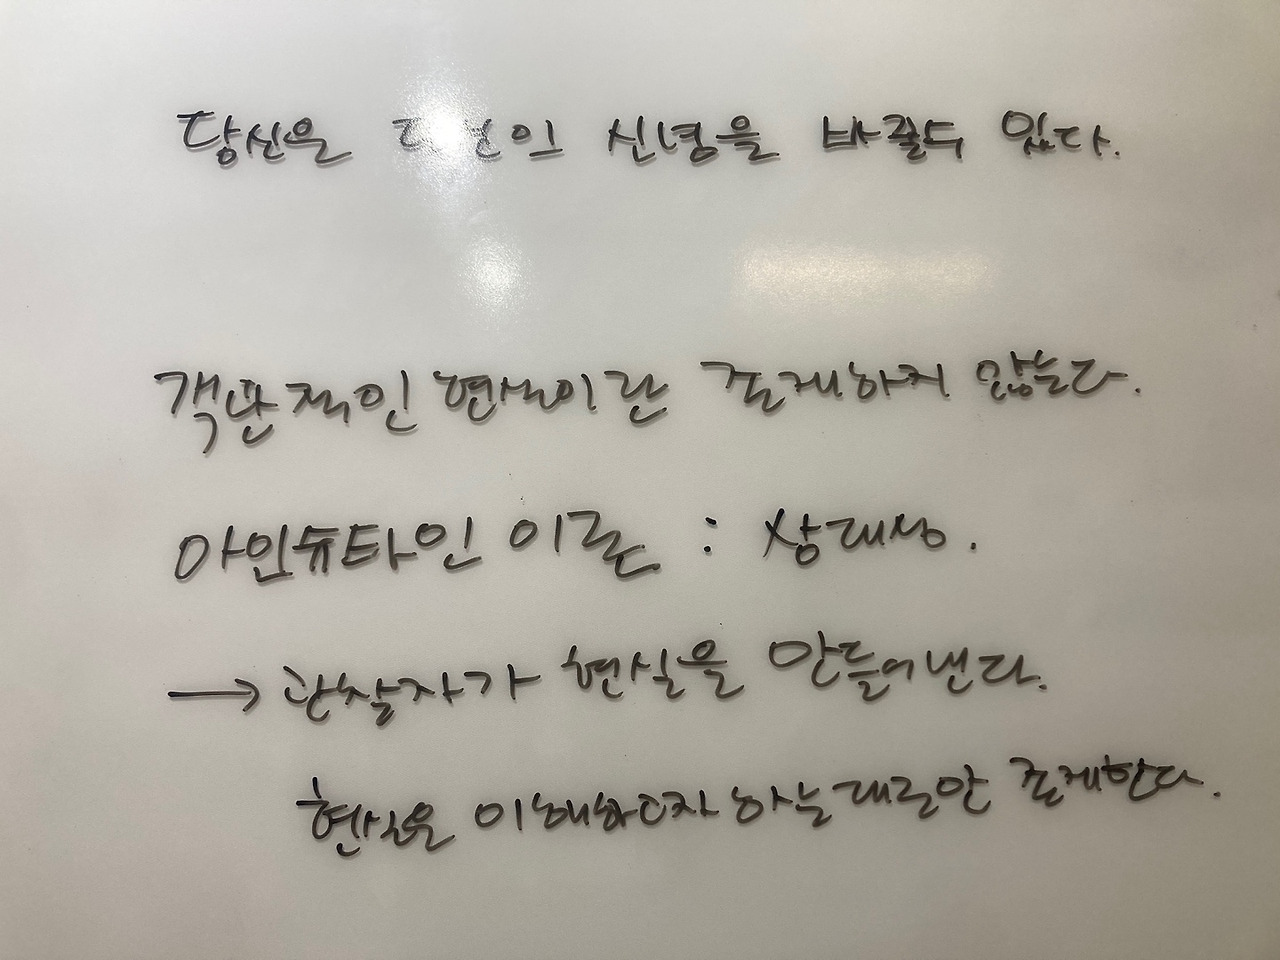 당신은 신념을 바꿀 수 있다.
객관적인 현실이란 존재하지 않는다.
아인슈타인 이론 : 상대성.
→ 관찰자가 현실을 만들어낸다.
현실은 이해하고자 하는대로만 존재한다.